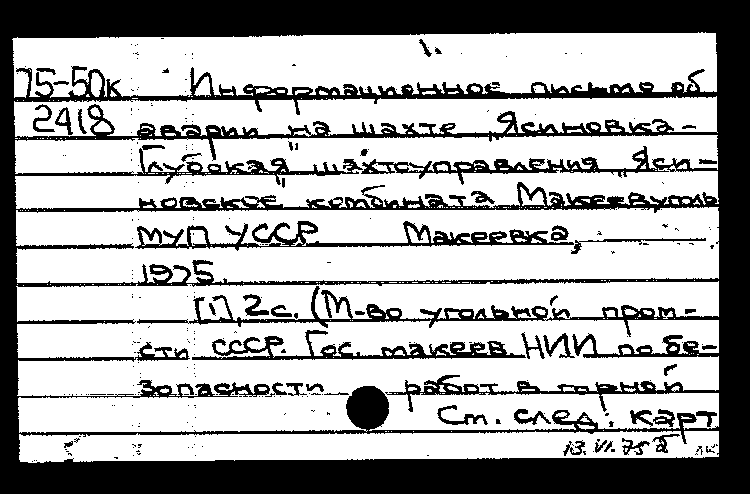 1.
75-50к Информационное письмо об
2418 аварии на шахте „Ясиновка-
Глубокая" шахтоуправления „Яси-
новское" комбината Макеевуголь
МУП УССР. Макеевка,
1975.
[1], 2 с. (М-во угольной пром-
сти СССР. Гос. макеев. НИИ по бе-
зопасности работ в горной
См. след. карт
13.VI.75